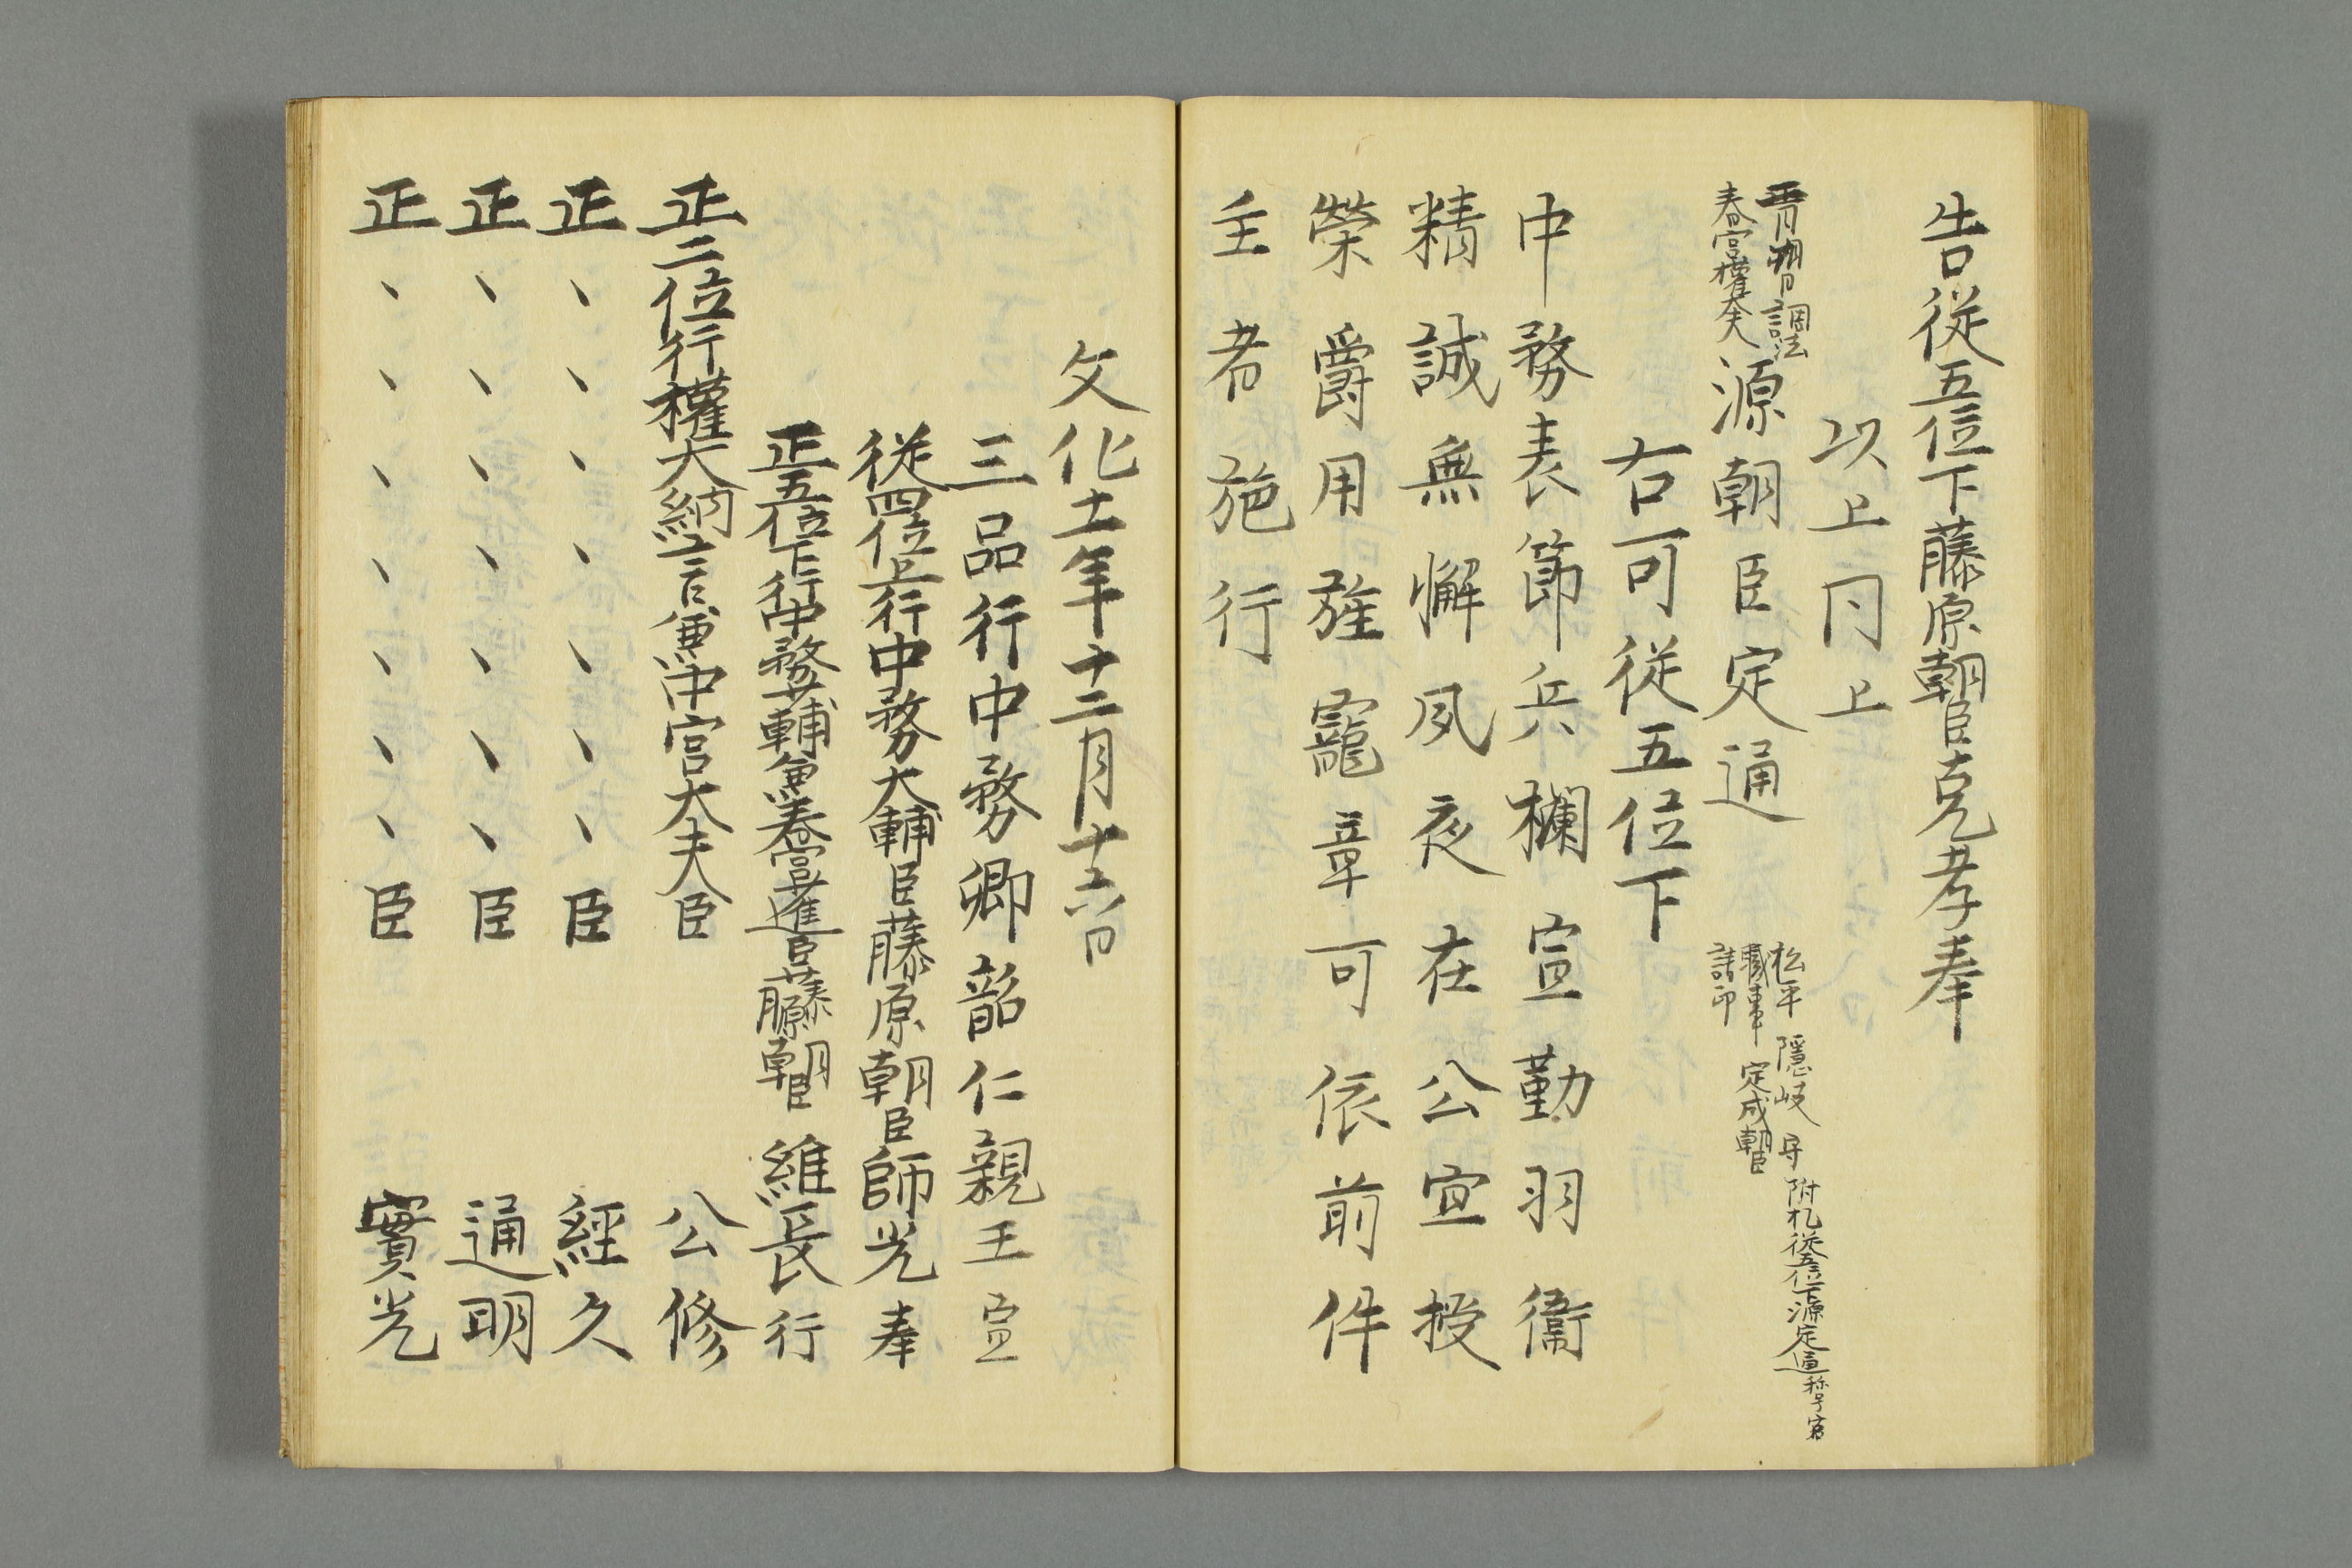 告從五位下藤原朝臣克孝奉
以上同上
春宮權大夫
源朝臣定通
松平隠岐守 附札従五位下源定通
職事定成朝臣
請印
右可從五位下
中務表節兵欄宣勤羽衞
精誠無懈夙夜在公宜授
榮爵用旌寵章可依前件
主者施行
文化十一年十二月十六日
三品行中務卿韶仁親王宣
從四位上行中務大輔臣藤原朝臣師光奉
正五位下行中務少輔兼春宮大進臣藤原朝臣維長行
正二位行權大納言兼中宮大夫臣 公修
正、、、、、、、臣 經久
正、、、、、、、臣 通明
正、、、、、、、臣 實光